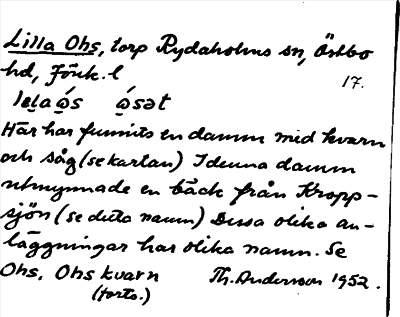 Lilla Ohs, torp Rydaholms sn, Östbo
hd, Jönk. l 17.
lḙlaώ̱s ώ̱sət
Här har funnits en damm med kvarn
och såg (se kartan) I denna damm
utmynnade en bäck från Kropp-
sjön (se detta namn) Dessa olika an-
läggningar har olika namn. Se
Ohs, Ohs kvarn Th. Andersson 1952.
(forts.)